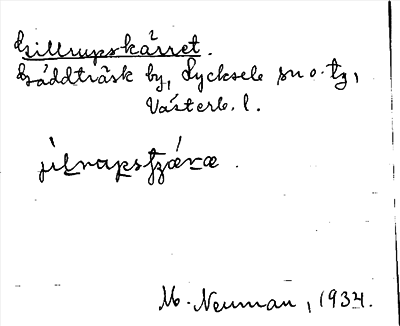 Gillrupskärret.
Gäddträsk by, Lycksele sn o. tg,
Västerb. l.
jilrupstʒæræ.
M. Neuman, 1934.